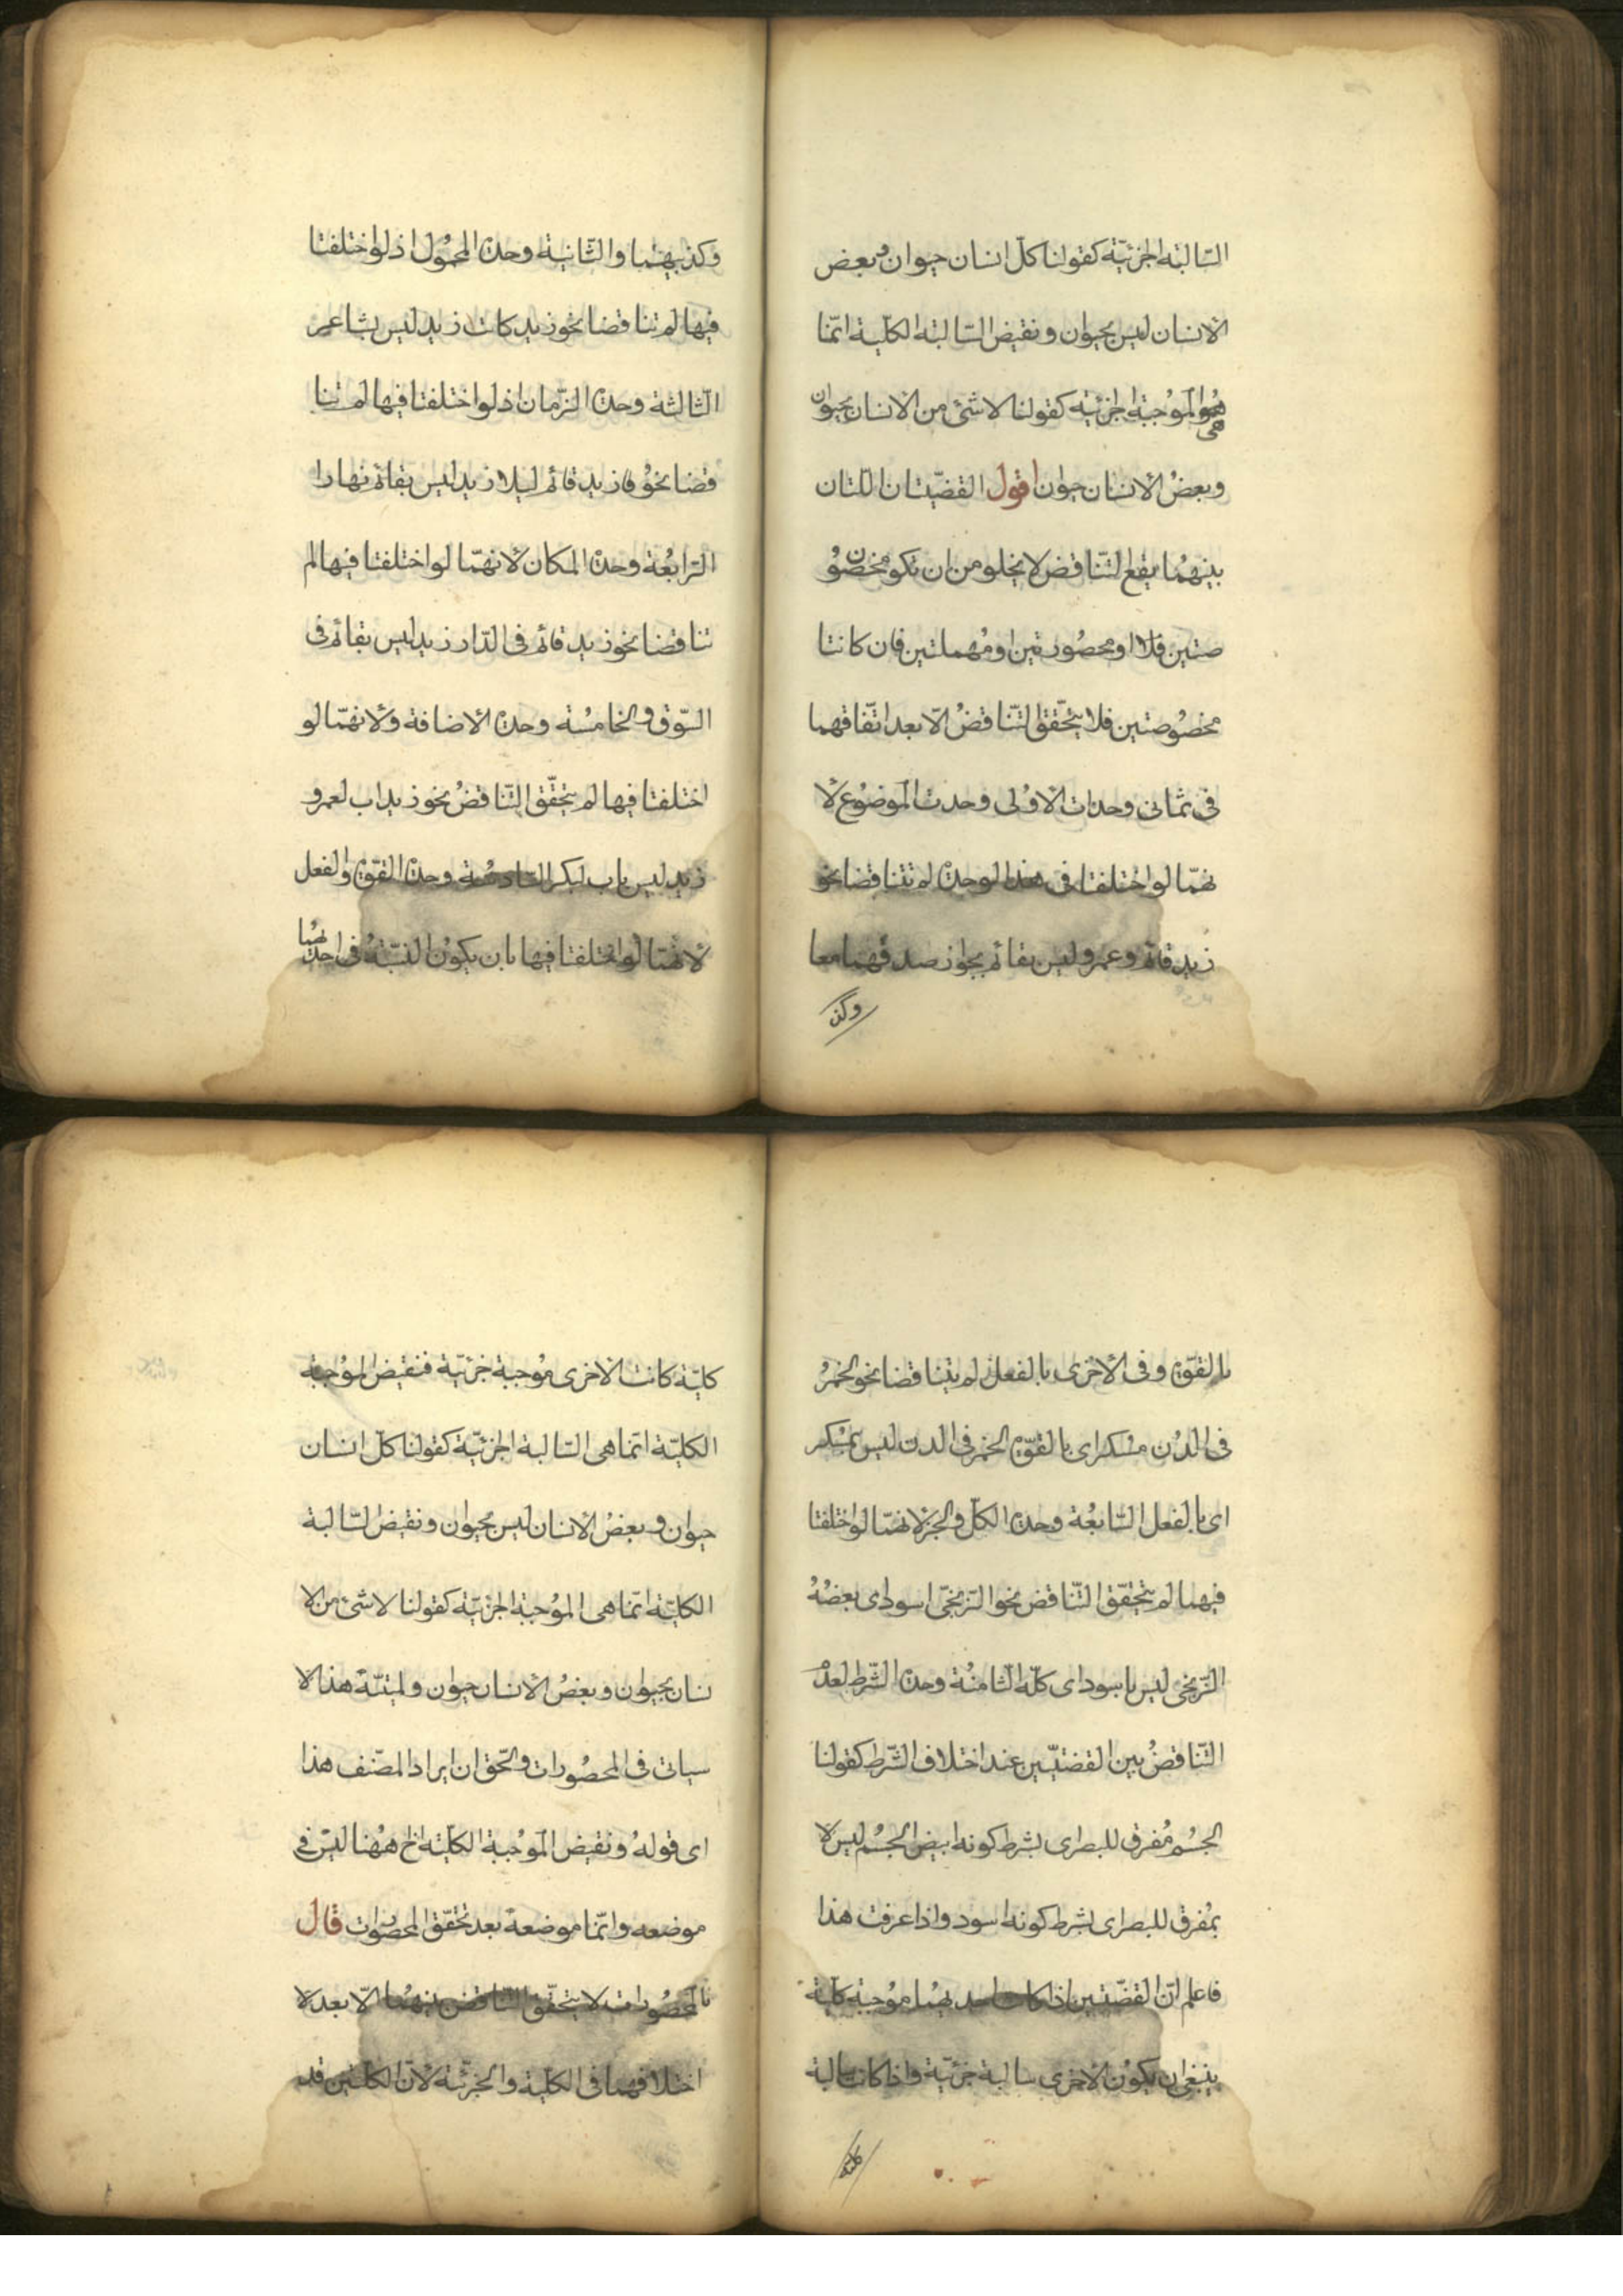 السّالبة الجزئيّة كقولنا كلّ انسان حيوان وبعض
الانسان ليس بحيوان ونقيض السّالبة الكلّية انّما
هى الموجبة الجزئية كقولنا لا شئ من الانسان بحيوان
وبعض الانسان حيوان اقول القضيّتان اللّتان
بينهما يقع التّناقض لا يخلو من ان تكون مخصو
صتين او محصورتين او مهملتين فان كانتا
مخصوصتين فلا يتحّقق التّناقض الّا بعد اتّفاقهما
فى ثمانى وحدات الاولى وحدت الموضوع لا
نهّما لو اختلفتا فى هذا الوحدة لم تتناقضا نحو
زيد قائم وعمرو ليس بقائم بجواز صدقهما معا
وكذ
وكذبهما والثّانية وحدة المحمول اذ لو اختلفتا
فيها لم تناقضا نحو زيد كاتب زيد ليس بشاعر
الثّالثة وحدة الزّمان اذ لو اختلفتا فيها لم تنا
قضا نحو زيد قائم ليلا زيد ليس بقائم نهارا
الرّابعة وحدة المكان لانهّما لو اختلفتا فيها لم
تناقضا نحو زيد قائم فى الدّار زيد ليس بقائم فى
السّوق والخامسة وحدة الاضافة ولانهّما لو
اختلفتا فيها لم يتحقّق التّناقض نحو زيد اب لعمرو
زيد ليس باب لبكر السّادسة وحدة القوّة والفعل
لانهّما لو اختلفتا فيها بان يكون النسبة فى احديهما
بالقوّة وفى الاخرى بالفعل لم يتناقضا نحو الخمر
فى الدن مسكر اى بالقوّة الخمر فى الدن ليس بمسكر
اى بالفعل السّابعة وحدة الكلّ والجزء لانهّما لو اختلفتا
فيهما لم يتحقّق التّناقض نحو الزّنجىّ اسود اى بعضه
الزّنجى ليس باسود اى كلّه الثامنة وحدة الشّرط لعدم
التّناقض بين القضيّتين عند اختلاف الشّرط كقولنا
الجسم مفرق للبصر اى بشرط كونه ابيض الجسم ليس لا
بمفرق للبصر اى بشرط كونه اسود واذا عرفت هذا
فاعلم انّ القضيّتين اذا كانت احديهما موجبة كلّية
ينبغى ان يكون الاخرى سالبة جزئيّة واذا كانت سالبة
كليّة
كليّة كانت الاخرى موجبة جزئيّة فنقيض الموجبة
الكليّة انّما هى السّالبة الجزئيّة كقولنا كلّ انسان
حيوان وبعض الانسان ليس بحيوان ونقيض السّالبة
الكليّة انّما هى الموجبة الجزئيّة كقولنا لا شئ من الا
نسان بحيوان وبعض الانسان حيوان هذا الا
سياتى فى المحصورات والحّق ان ايراد المصّنف هذا
اى قوله ونقيض الموجبة الكلّية الخ ههنا ليس فى
موضعه وانّما موضعه بعد تحقّق المحصورات قال
المحصورات لا يتحقّق التّناقض بينهما الّا بعد لا
اختلافهما فى الكلّية والجزئيّة لانّ الكلّيتين قد